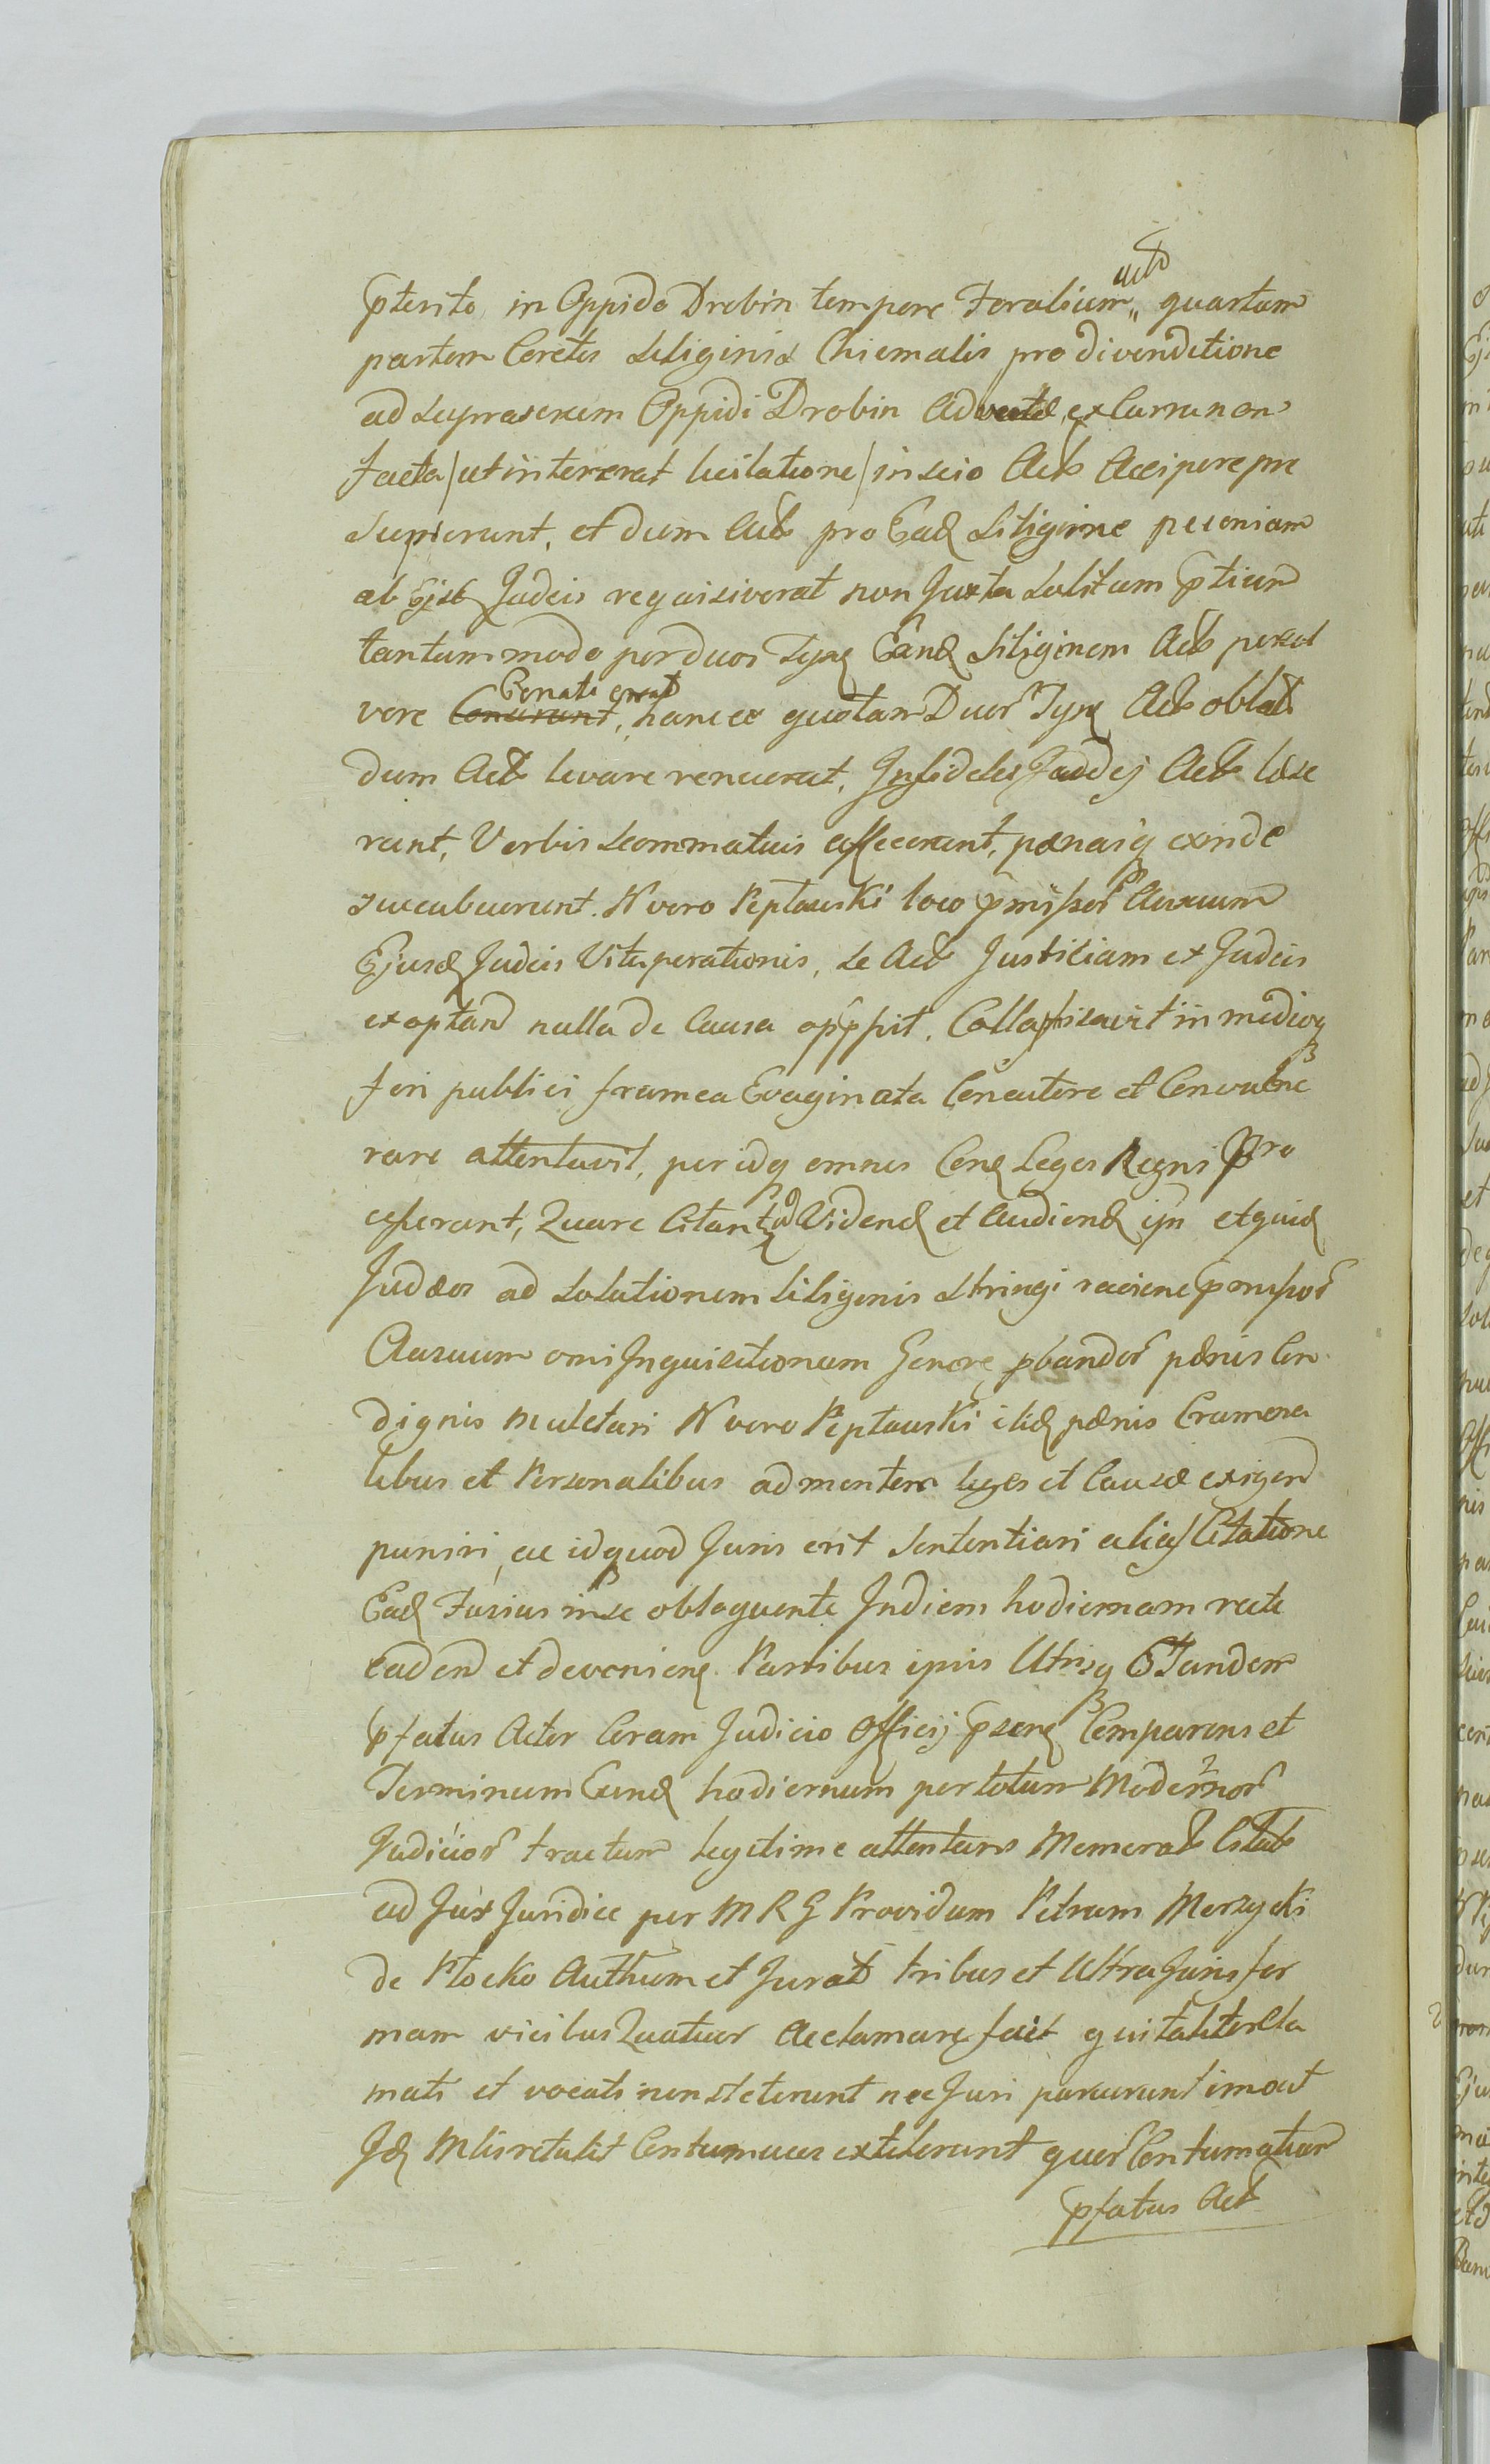 actõ
ꝑterito in Oppido Drobin tempore Foralium,, quartam
partem Coretis Siliginis Chiemalis pro divenditione
ad suprascrium Oppidi Drobin Advectæ, ex Curru non
facta /ut intererat licitatione/ inscio Actō Accipere præ
sumserunt, et dum Actō pro Eadē Siligine pecuniam
ab Ejsdē Judeis requisiverat non Juxta solitum ꝑtium
tantummodo per duos Tynē Eandē Siliginem Actō persol
vere Conati erant, hance quotam Duorˢ Tynē Actō oblatā
dum Actō levare renuerat, Infideles Judæj Actō læse
runt, Verbis scommaticis affecerunt, pænasq̃ exinde
succubuerunt. N vero Peptowski loco ꝑmissorˢ Ausuum
Ejusdē Judeis Vituperationis, se Actō Justiciam ex Judeis
exoptanō nulla de Causa opp̃ssit. Collaphisavit in medioq̃
fori publici framea Evaginata Concutere et Convulne
rare attentavit, per idq̃ omnes Conē Leges Regni Pro
cesserunt, Quare Citantr̃ ad Videndē et Audiendē ipñ etquidē
Judæos ad Solutionem Siliginis Stringi racione ꝑmissorˢ
Ausuum omi Inquisitionum Genere ꝓbandorˢ pænis Con
dignis mulctari N vero Peptowski itidē pænis Cramina
libus et Personalibus ad mentem leges et Causæ exigenō
puniri, ac id quod Juris erit Sententiari alias Citatione
Eadē Fusius in se obloquente In diem hodiernam rite
cadenō et devenienē. Partibus ipsis Utrisq̃ O Tandem
ꝑfatus Actor Coram Judicio Officij ꝑsenē Comparens et
Terminum Eundē hodiernum per totum Modernorˢ
Judiciorˢ tractum legitime attentans Memoratō Citatō
ad Jus Juridice per M R G Providum Petrum Morzycki
de Płocko Authum et Juratō tribus et Ultra Juris for
mam vicibus Quatuor Acclamare fecit qui taliter Cla
mati et vocati non steterunt nec Juri paruerunt imo ut
Idē Mlis retulit Contumaces extiterunt quorˢ Contumatiam
ꝑfatus Actō